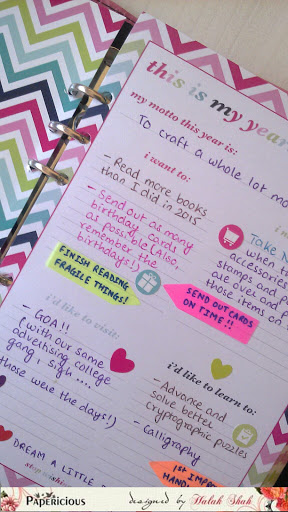 this is my year
my motto this year is:
To craft a whole lot mo
i want to:
- Read more books
than I did in 2015
- Send out as many
birthday cards
as possible (Also,
remember the
birthdays!)
FINISH READING
FRAGILE THINGS!
Take No
when t
accessories
stamps and p
are over and p
those items on
SEND OUT CARDS
ON TIME!!
i'd like to visit:
- GOA!!
(with our same
advertising college
gang, sigh ....
those were the days!)
i'd like to learn to:
- Advance and
solve better
cryptographic puzzles
- Calligraphy
- DREAM A LITTLE
1st IMPR
HAND
PAPERICIOUS
designed by Halak Shah